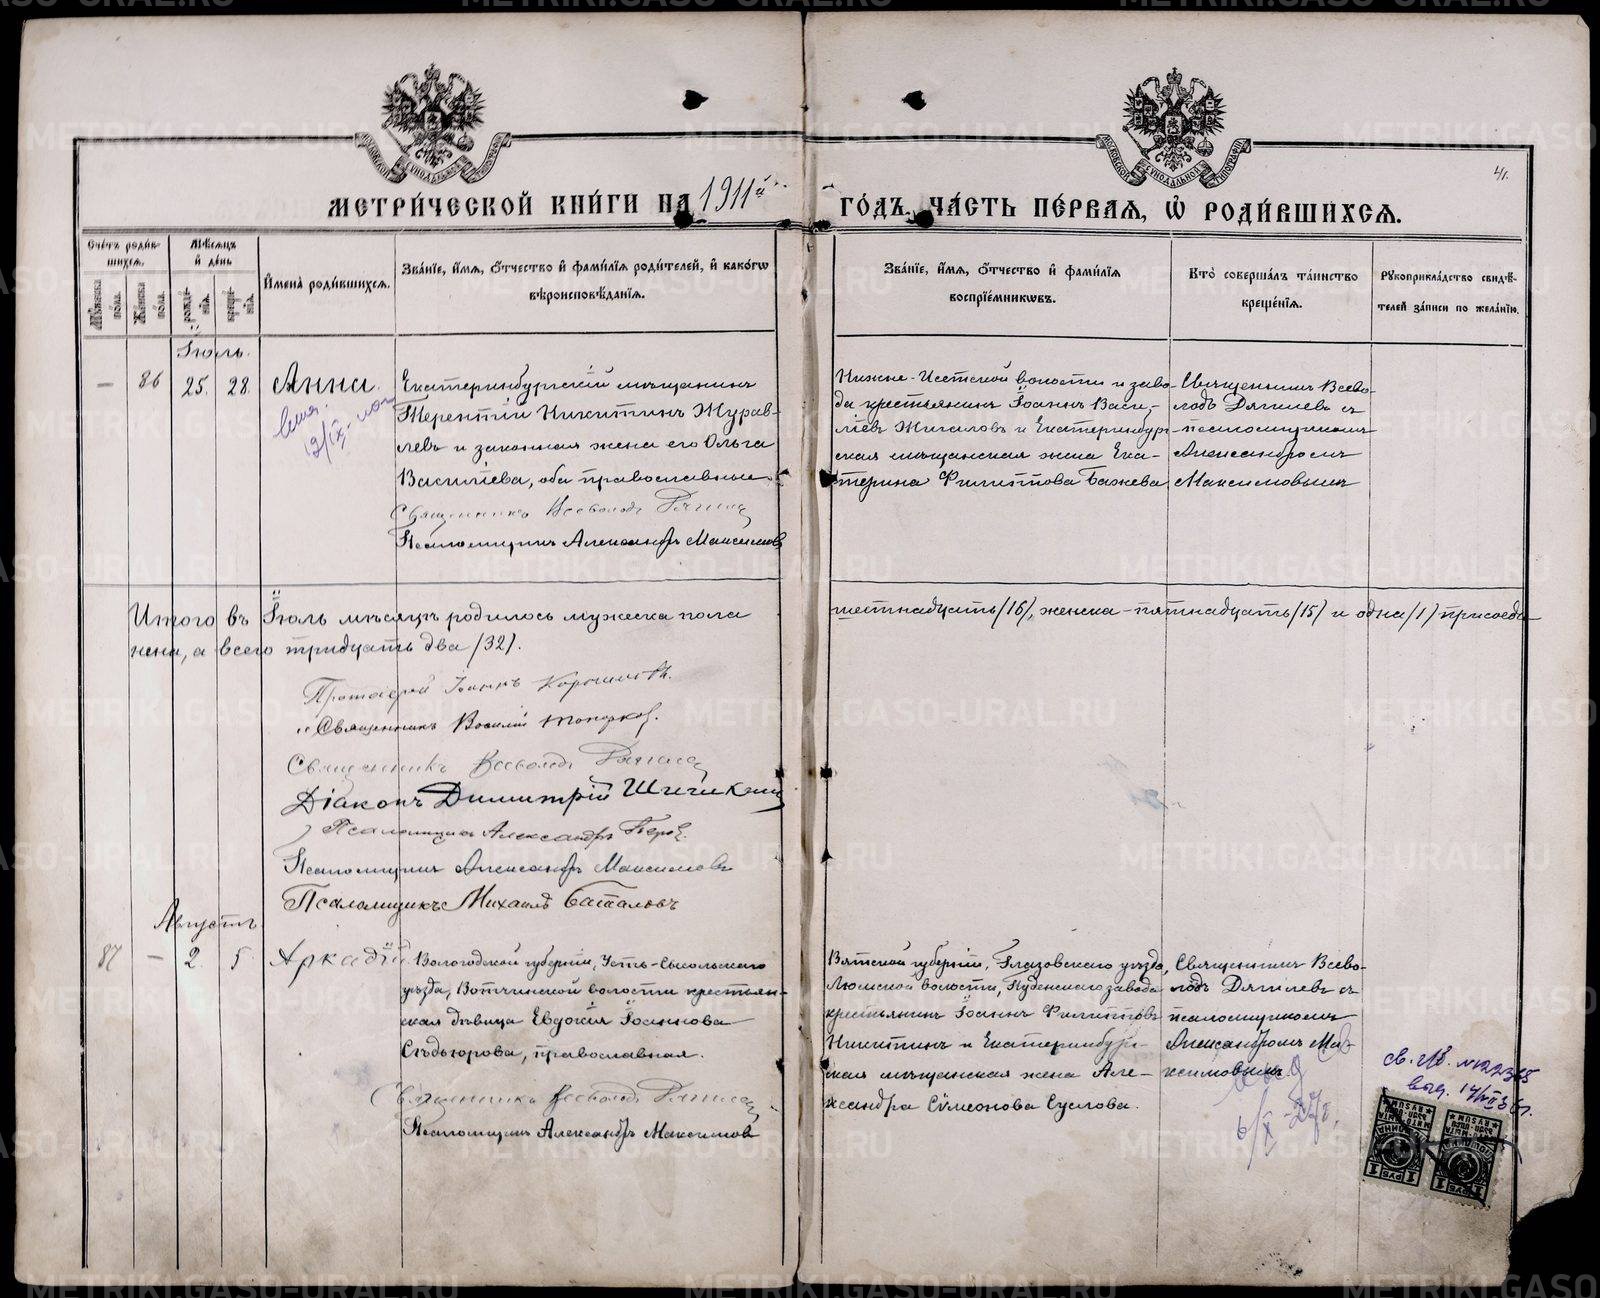 МЕТРИ́ЧЕСКОЙ КНИ́ГИ НА 1911й ГО́ДЪ, ЧА́СТЬ ПЕ́РВАЯ, Ѡ҆ РОДИ́ВШИХСЯ.
41.
Сче́тъ роди́в-
шихся.
Му́жеска по́ла.
Же́нска по́ла.
Мѣ́сяцъ
и҆ де́нь
рожде́нія.
креще́нія.
И҆мена̀ роди́вшихся.
Зва́нїе, и҆́мя, ѻ҆́тчество и҆ фами́лїя роди́телей, и҆ како́гѡ
вѣроисповѣ́данїя.
Зва́нїе, и҆́мя, ѻ҆́тчество и҆ фами́лїя
воспрїе́мникѡвъ.
Кто̀ соверша́лъ та́инство
креще́нїя.
Рꙋкоприкла́дство свидѣ́-
телей за́писи по жела́нїю.
Іюль.
— 86 25. 28. Анна.
Екатеринбургскій мѣщанинъ
Терентій Никитинъ Журав-
левъ и законная жена его Ольга
Васильева, оба православные
Священникъ Всеволодъ Дягилевъ
Псаломщикъ Александръ Максимовъ
Нижне-Исетской волости и заво-
да крестьянинъ Іоаннъ Васи-
ліевъ Жигаловъ и Екатеринбург-
ская мѣщанская жена Ека-
терина Филиппова Бажева
Священникъ Всево-
лодъ Дягилевъ съ
псаломщикомъ
Александромъ
Максимовымъ
Итого въ Іюль мѣсяцъ родилось мужеска пола шестнадцать /16/, женска - пятнадцать /15/ и одна /1/ присоеди-
нена, а всего тридцать два /32/.
Протоіерей Іоаннъ
Священникъ Василій
Священникъ Всеволодъ Дягилевъ
Діаконъ Димитрій
Псаломщикъ Александръ
Псаломщикъ Александръ Максимовъ
Псаломщикъ Михаилъ Баталовъ
Августъ
87 — 2. 5. Аркадій
Вологодской губерніи, Усть-Сысольскаго
уѣзда, Вотчинской волости крестьян-
ская дѣвица Евдокія Іоаннова
православная.
Священникъ Всеволодъ Дягилевъ
Псаломщикъ Александръ Максимовъ
Вятской губерніи, Глазовскаго уѣзда,
Люмской волости, Пудемскаго завода
крестьянинъ Іоаннъ Филипповъ
Никитинъ и Екатеринбург-
ская мѣщанская жена Але-
ксандра Сѵмеонова Суслова.
Священникъ Всево-
лодъ Дягилевъ съ
псаломщикомъ
Александромъ Ма-
ксимовымъ
1 РУБ 1
1 РУБ 1
METRIKI.GASO-URAL.RU